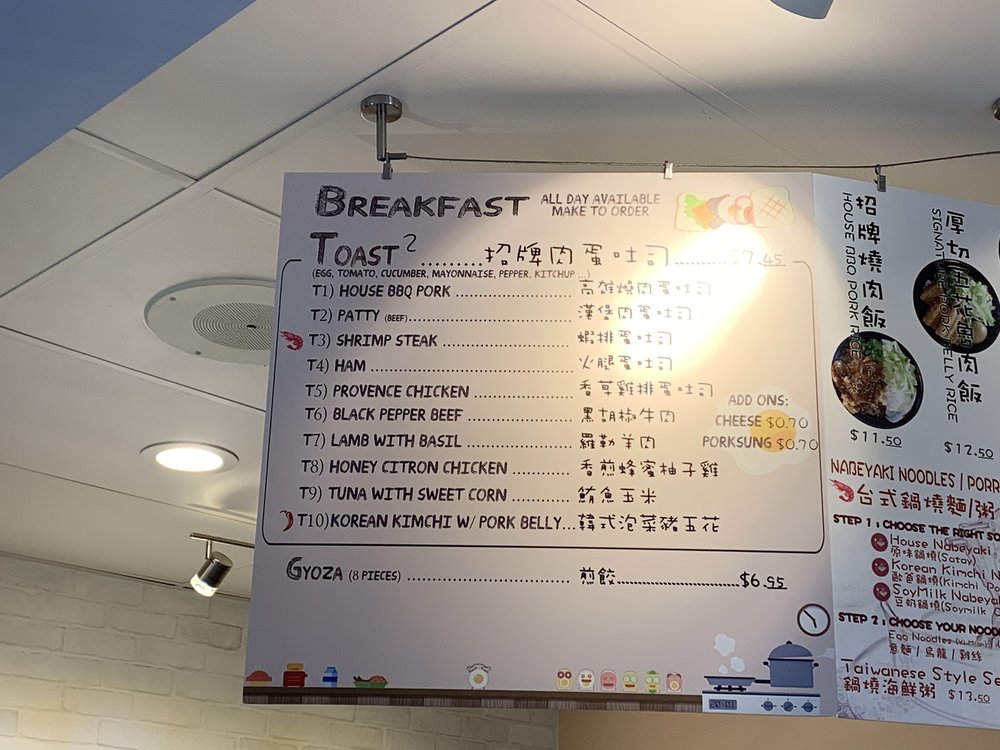 BREAKFAST ALL DAY AVAILABLE
MAKE TO ORDER
TOAST 2.........招牌肉蛋吐司.........$7.45
(EGG, TOMATO, CUCUMBER, MAYONNAISE, PEPPER, KITCHUP ...)
T1) HOUSE BBQ PORK ........................ 高雄燒肉蛋吐司
T2) PATTY (BEEF)................................ 漢堡肉蛋吐司
T3) SHRIMP STEAK ........................... 蝦排蛋吐司
T4) HAM .......................................... 火腿蛋吐司
T5) PROVENCE CHICKEN ..................... 香草雞排蛋吐司
T6) BLACK PEPPER BEEF ..................... 黑胡椒牛肉
T7) LAMB WITH BASIL ....................... 羅勒羊肉
T8) HONEY CITRON CHICKEN ............. 香煎蜂蜜柚子雞
T9) TUNA WITH SWEET CORN ............. 鮪魚玉米
T10)KOREAN KIMCHI W/ PORK BELLY...韓式泡菜豬五花
ADD ONS:
CHEESE $0.70
PORKSUNG $0.70
GYOZA (8 PIECES) ................................ 煎餃..............................$6.95
招牌燒肉飯
HOUSE BBQ PORK RICE
$11.50
厚切五花滷肉飯
SIGNATURE PORK BELLY RICE
$12.50
NABEYAKI NOODLES / PORR
台式鍋燒麵/粥
STEP 1 : CHOOSE THE RIGHT SO
House Nabeyaki
原味鍋燒(Satay)
Korean Kimchi N
歐爸鍋燒(Kimchi
SoyMilk Nabeya
豆奶鍋燒(Soymilk
STEP 2 : CHOOSE YOUR NOOD
Egg Noodles
意麵 / 烏龍 / 雞絲
Taiwanese Style Se
鍋燒海鮮粥 $13.50